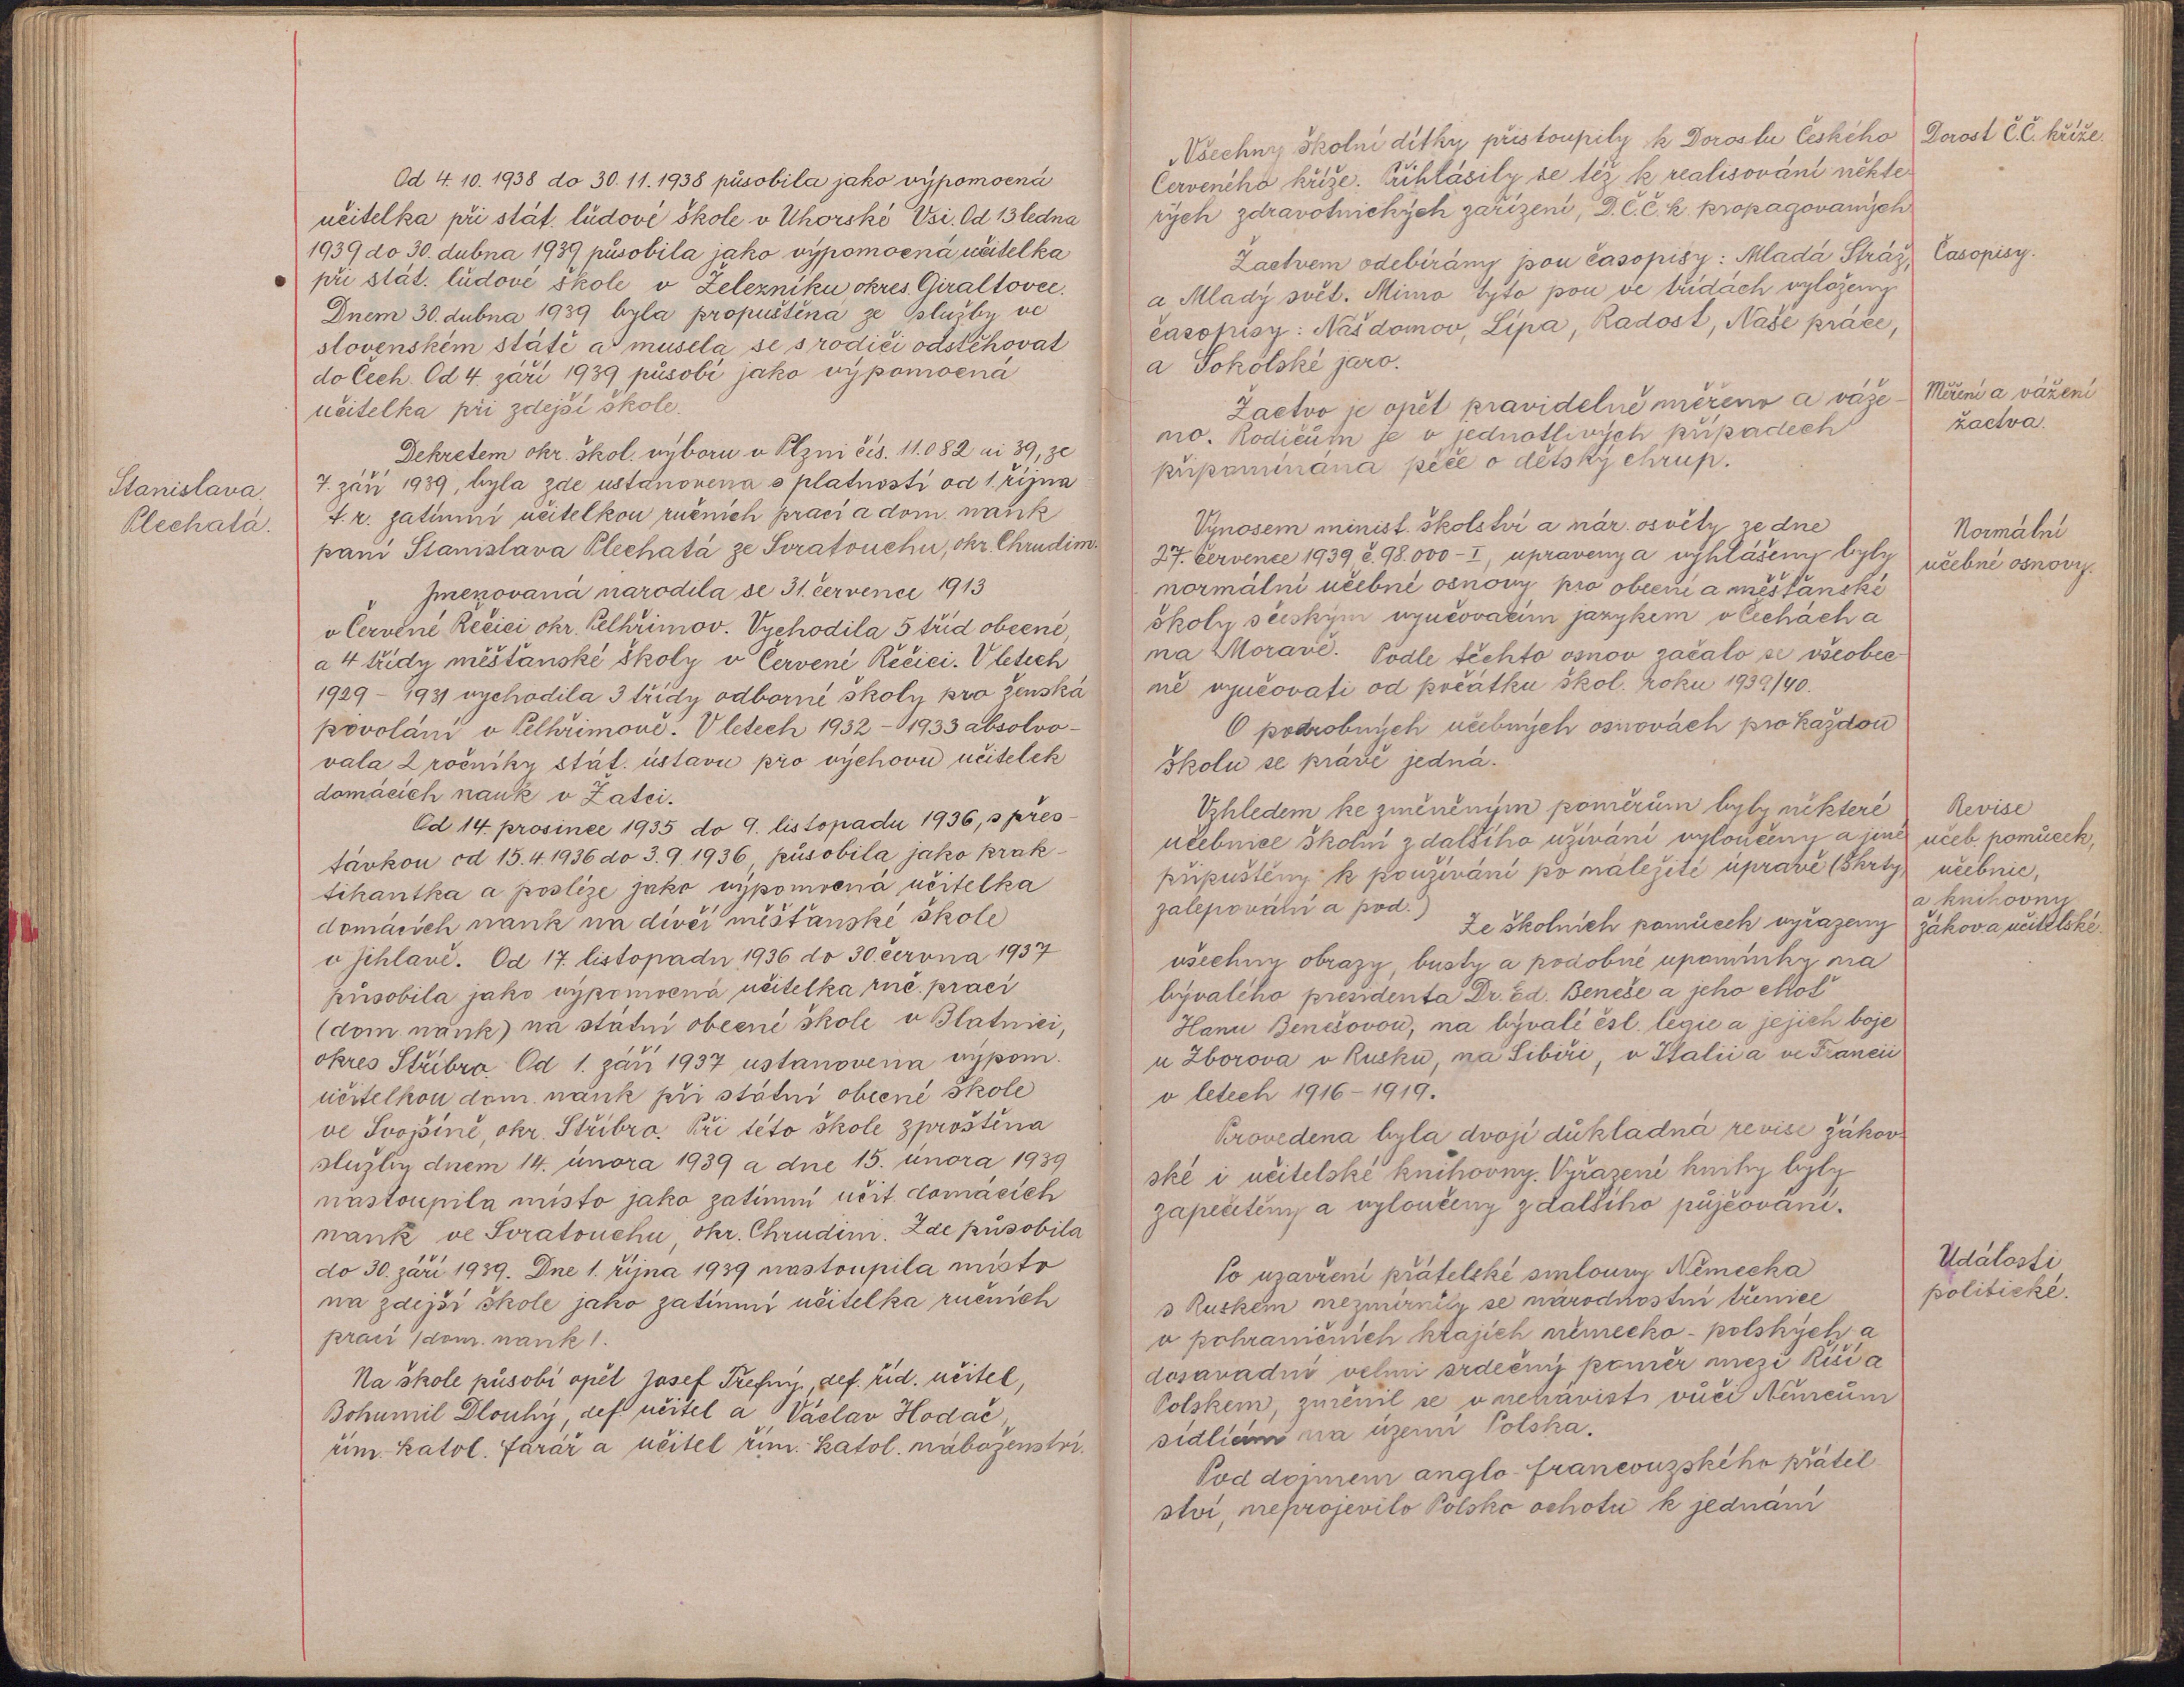 Od 4. 10. 1938 do 30. 11. 1938 působila jako výpomocná
učitelka při stát. lůdové škole v Uhorské Vsi. Od 13 ledna
1939 do 30. dubna 1939 působila jako výpomocná učitelka
při stát. lůdové škole v Železníku okres. Giraltovce.
Dnem 30. dubna 1939 byla propuštěna ze služby ve
slovenském státě a musela se s rodiči odstěhovat
do Čech. Od 4. září 1939 působí jako výpomocná
učitelka při zdejší škole.
Dekretem okr. škol. výboru v Plzni čís. 11.082 ai 39, ze
Stanislava
Plechatá.
7. září 1939, byla zde ustanovena s platností od 1. října
t. r. zatímní učitelkou ručních prací a dom. nauk
paní Stanislava Plechatá ze Svratouchu, okr. Chrudim.
Jmenovaná narodila se 31. července 1913
v Červené Řečici okr. Pelhřimov. Vychodila 5 tříd obecné,
a 4 třídy měšťanské školy v Červené Řečici. V letech
1929 – 1931 vychodila 3 třídy odborné školy pro ženská
povolání v Pelhřimově. V letech 1932 – 1933 absolvo-
vala 2 ročníky stát. ústavu pro výchovu učitelek
domácích nauk v Žatci.
Od 14. prosince 1935 do 9. listopadu 1936, s přes-
távkou od 15. 4. 1936 do 3. 9. 1936, působila jako prak-
tikantka a posléze jako výpomocná učitelka
domácích nauk na dívčí měšťanské škole
v Jihlavě. Od 17. listopadu 1936 do 30. června 1937
působila jako výpomocná učitelka ruč. prací
(dom. nauk) na státní obecné škole v Blatnici,
okres Stříbro. Od 1. září 1937 ustanovena výpom.
učitelkou dom. nauk při státní obecné škole
ve Svojšíně, okr. Stříbro. Při této škole zproštěna
služby dnem 14. února 1939 a dne 15. února 1939
nastoupila místo jako zatímní učit. domácích
nauk ve Svratouchu, okr. Chrudim. Zde působila
do 30. září 1939. Dne 1. října 1939 nastoupila místo
na zdejší škole jako zatímní učitelka ručních
prací /dom. nauk/.
Na škole působí opět Josef Třefný, def. říd. učitel,
Bohumil Dlouhý, def. učitel a Václav Hodač,
řím.-katol. farář a učitel řím.-katol. náboženství.
Všechny školní dítky přistoupily k Dorostu Českého
Dorost Č.Č. kříže.
Červeného kříže. Přihlásily se též k realisování někte-
rých zdravotnických zařízení, D.Č.Č.k. propagovaných
Žactvem odebírány jsou časopisy: Mladá Stráž,
Časopisy.
a Mladý svět. Mimo tyto jsou ve třídách vyloženy
časopisy: Náš domov, Lípa, Radost, Naše práce,
a Sokolské jaro.
Žactvo je opět pravidelně měřeno a váže-
Měření a vážení
žactva.
no. Rodičům je v jednotlivých případech
připomínána péče o dětský chrup.
Výnosem minist. školství a nár. osvěty ze dne
Normální
učebné osnovy.
27. července 1939 č. 98.000-I, upraveny a vyhlášeny byly
normální učebné osnovy pro obecné a měšťanské
školy s českým vyučovacím jazykem v Čechách a
na Moravě. Podle těchto osnov začalo se všeobec-
ně vyučovati od počátku škol. roku 1939/40.
O podrobných učebných osnovách pro každou
školu se právě jedná.
Vzhledem ke změněným poměrům byly některé
Revise
učeb. pomůcek,
učebnic,
a knihovny
žákov. a učitelské.
učebnice školní z dalšího užívání vyloučeny a jiné
připuštěny k používání po náležité úpravě (škrty,
zalepování a pod.)
Ze školních pomůcek vyřazeny
všechny obrazy, busty a podobné upomínky na
bývalého presidenta Dr. Ed. Beneše a jeho choť
Hanu Benešovou, na bývalé čsl. legie a jejich boje
u Zborova v Rusku, na Sibiři, v Italii a ve Francii
v letech 1916 – 1919.
Provedena byla dvojí důkladná revise žákov-
ské i učitelské knihovny. Vyřazené knihy byly
zapečetěny a vyloučeny z dalšího půjčování.
Po uzavření přátelské smlouvy Německa
Události
politické.
s Ruskem nezmírnily se národnostní třenice
v pohraničních krajích německo-polských a
dosavadní velmi srdečný poměr mezi Říší a
Polskem, změnil se v nenávist vůči Němcům
sídlícím na území Polska.
Pod dojmem anglo-francouzského přátel-
ství, neprojevilo Polsko ochotu k jednání